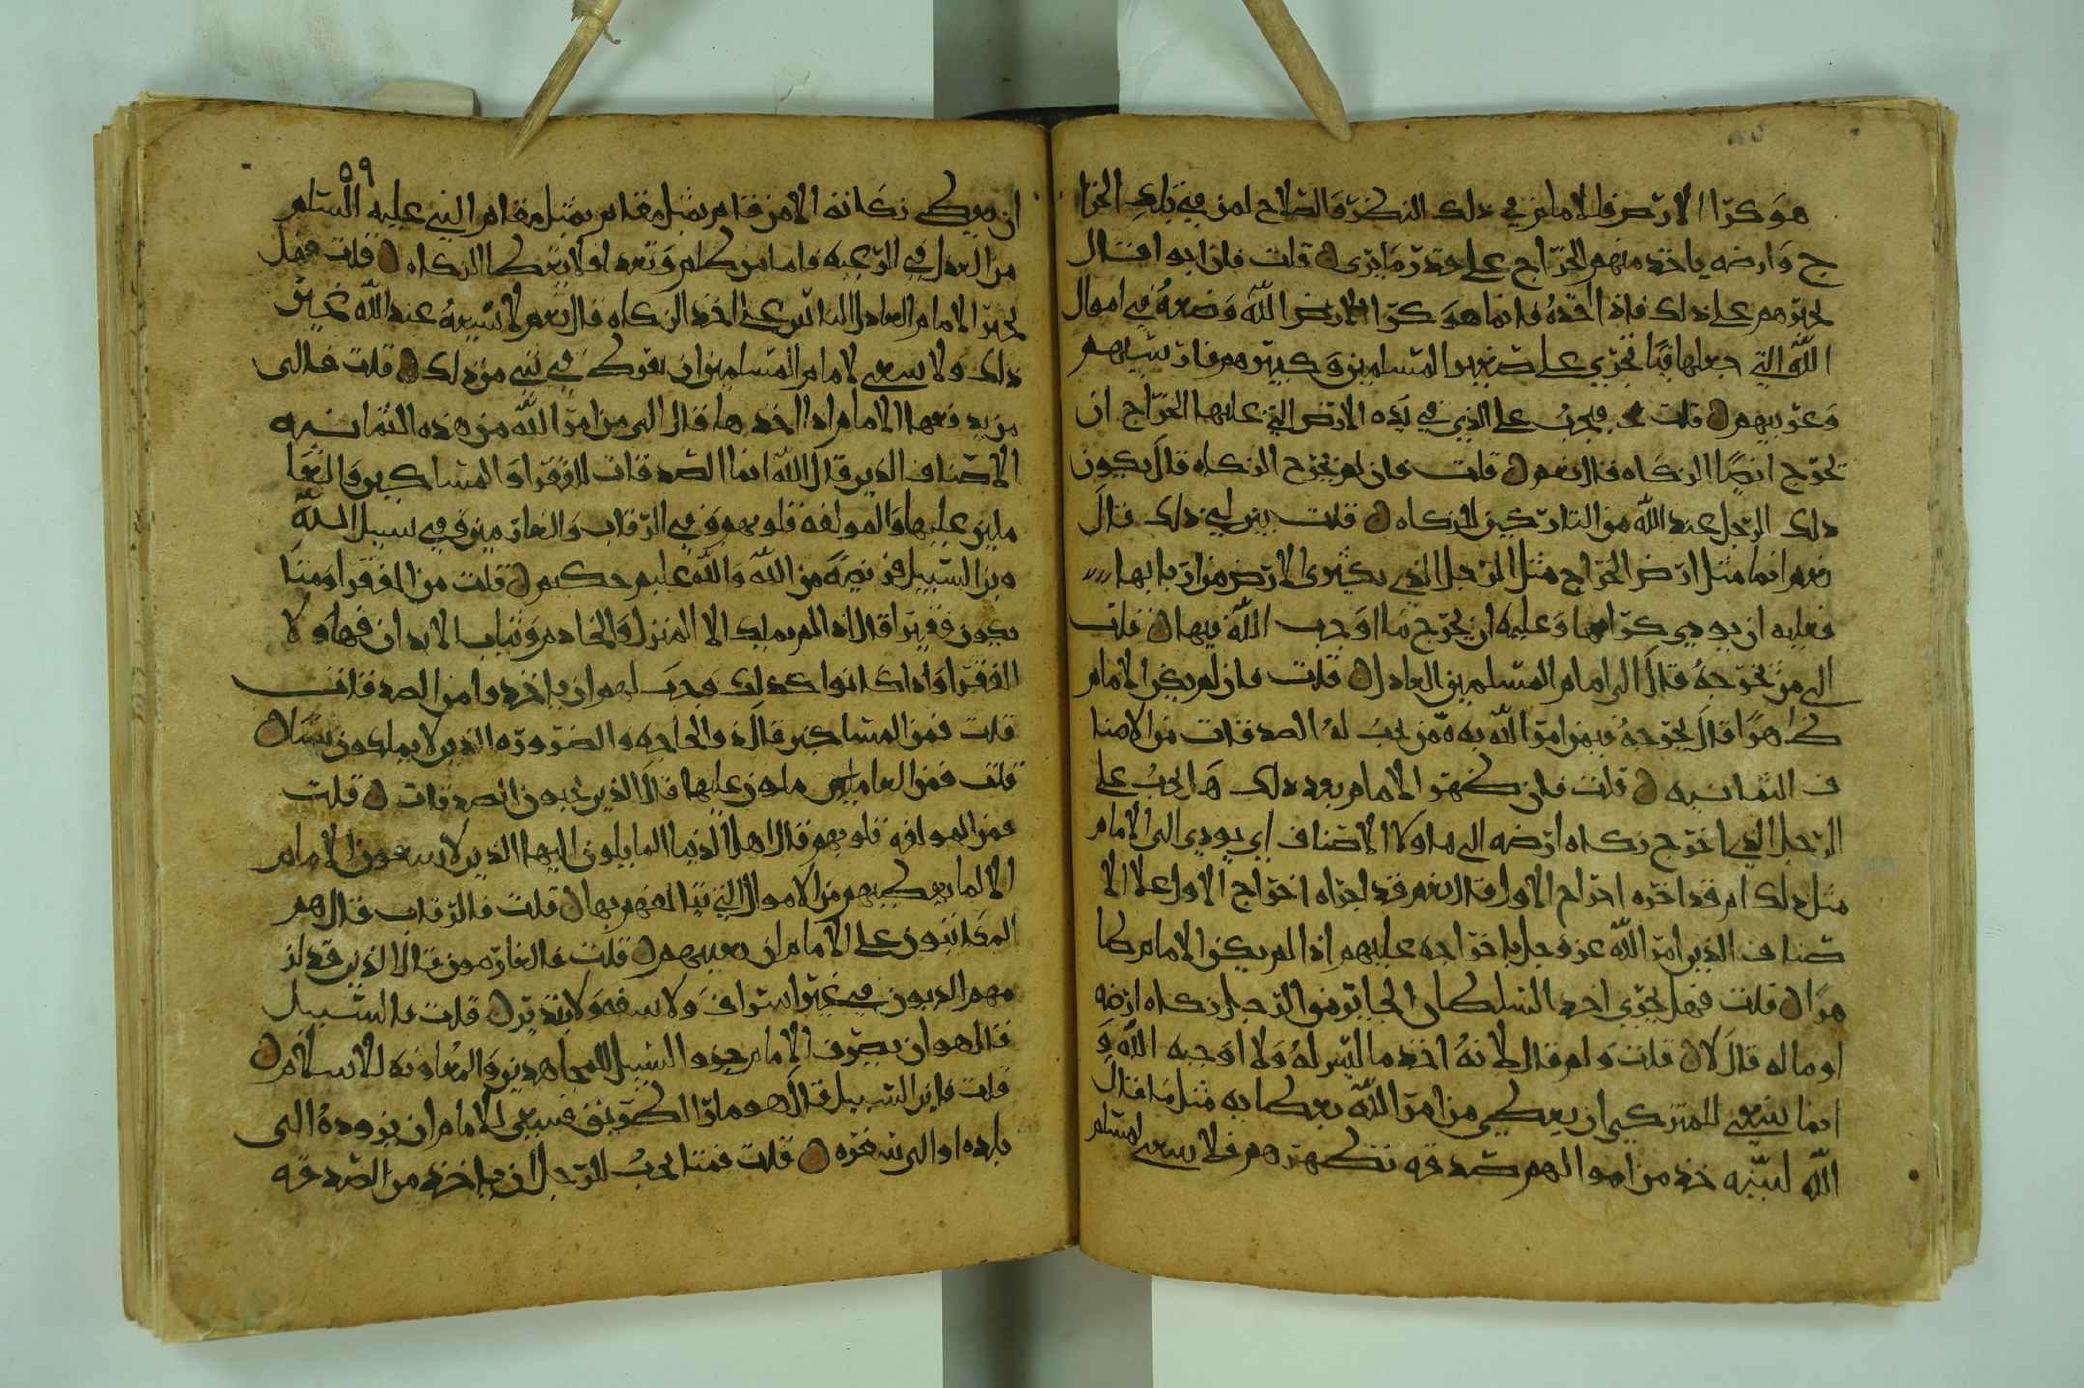 هو كرا الارض فللامام في ذلك النظر والصلاح لمن في بلد الخرا
ج وارضه ياخذ منهم الخراج على قدر ما يرى قلت فان ابوا فقال
يجبرهم على ذلك فاذا اخذه فانما هو كرا الارض الله وضعه في اموال
الله التي جعلها فيا تجري على صغير المسلمين وكبيرهم فارسيهم
وعربيهم قلت فيجب على الذي في يده الارض التي عليها الخراج ان
يخرج ايضا الزكاه قال نعم قلت فان لم يخرج الزكاه قال يكون
ذلك الرجل عند الله من التاركين للزكاه قلت بين لي ذلك فقال
نعم انما مثل ارض الخراج مثل الرجل الذي يكتري الارض من اربابها
فعليه ان يودي كراها وعليه ان يخرج ما اوجب الله فيها قلت
الى من يخرجه قال الى امام المسلمين العادل قلت فان لم يكن الامام
ظاهرا قال يخرجه فيمن امر الله به ممن يجب له الصدقات من الاصنا
ف الثمانيه قلت فان ظهر الامام بعد ذلك هل يجب على
الرجل الذي اخرج زكاه ارضه الى هاولا الاصناف ان يودي الى الامام
مثل ذلك ام قد اجزه اخراج الاول قال نعم قد اجزاه اخراج الاول على الا
صناف الذين امر الله عز وجل باخراجه عليهم اذا لم يكن الامام ظا
هرا قلت فهل يجزي اخذ السلطان الجاير من الرجل زكاه ارضه
او ماله قال لا قلت ولم قال لانه اخذ ما ليس له ولا اوجبه الله و
انما ينبغي للمزكي ان يعطي من امر الله بعطا به مثل ما قال
الله لنبيه خذ من اموالهم صدقه تطهرهم فلا ينبغي لمسلم
٥٩
ان يزكي زكاته الا من قام بمثل مقام النبي عليه السلام
من العدل في الرعيه فاما من ظلم وتعدا فلا يعطا الزكاه قلت فهل
يجبر الامام العادل الناس على اخذ الزكاه قال نعم لا يسعه عند الله غير
ذلك ولا ينبغي لامام المسلمين ان يفرط في شي من ذلك قلت فالى
من يدفعها الامام اذا اخذها قال الى من امر الله من هذه الثمانيه
الاصناف الذين قال الله انما الصدقات للفقرا والمساكين والعا
ملين عليها والمولفه قلوبهم وفي الرقاب والغارمين وفي سبيل الله
وبن السبيل فريضه من الله والله عليم حكيم قلت من الفقرا ومتا
يكون فقيرا قال اذا لم يملك الا المنزل والخادم وثياب الابدان فهاولا
الفقرا واذا كانوا كذلك وجب لهم ان ياخذوا من الصدقات
قلت فمن المساكين قال ذو الحاجه والضروره الذين لا يملكون شيا
قلت فمن العاملين عليها قال الذين يجبون الصدقات قلت
فمن المولفه قلوبهم قال اهل الدنيا المايلون اليها الذين لا يتبعون الامام
الا لما يعطيهم من الاموال التي يتالفهم بها قلت فالرقاب قال هم
المكاتبون على الامام ان يعينهم قلت فالغارمون قال الذين قد لز
مهم الديون في غير اسراف ولا سفه ولا تبذير قلت فالسبيل
قال هو ان يصرف الامام جزو السبيل للمجاهدين والمعاونه للاسلام
قلت فابن السبيل قال هو مار الطريق فينبغي للامام ان يزوده الى
بلده او الى سفره قلت فمتا يجب للرجل ان ياخذ من الصدقه